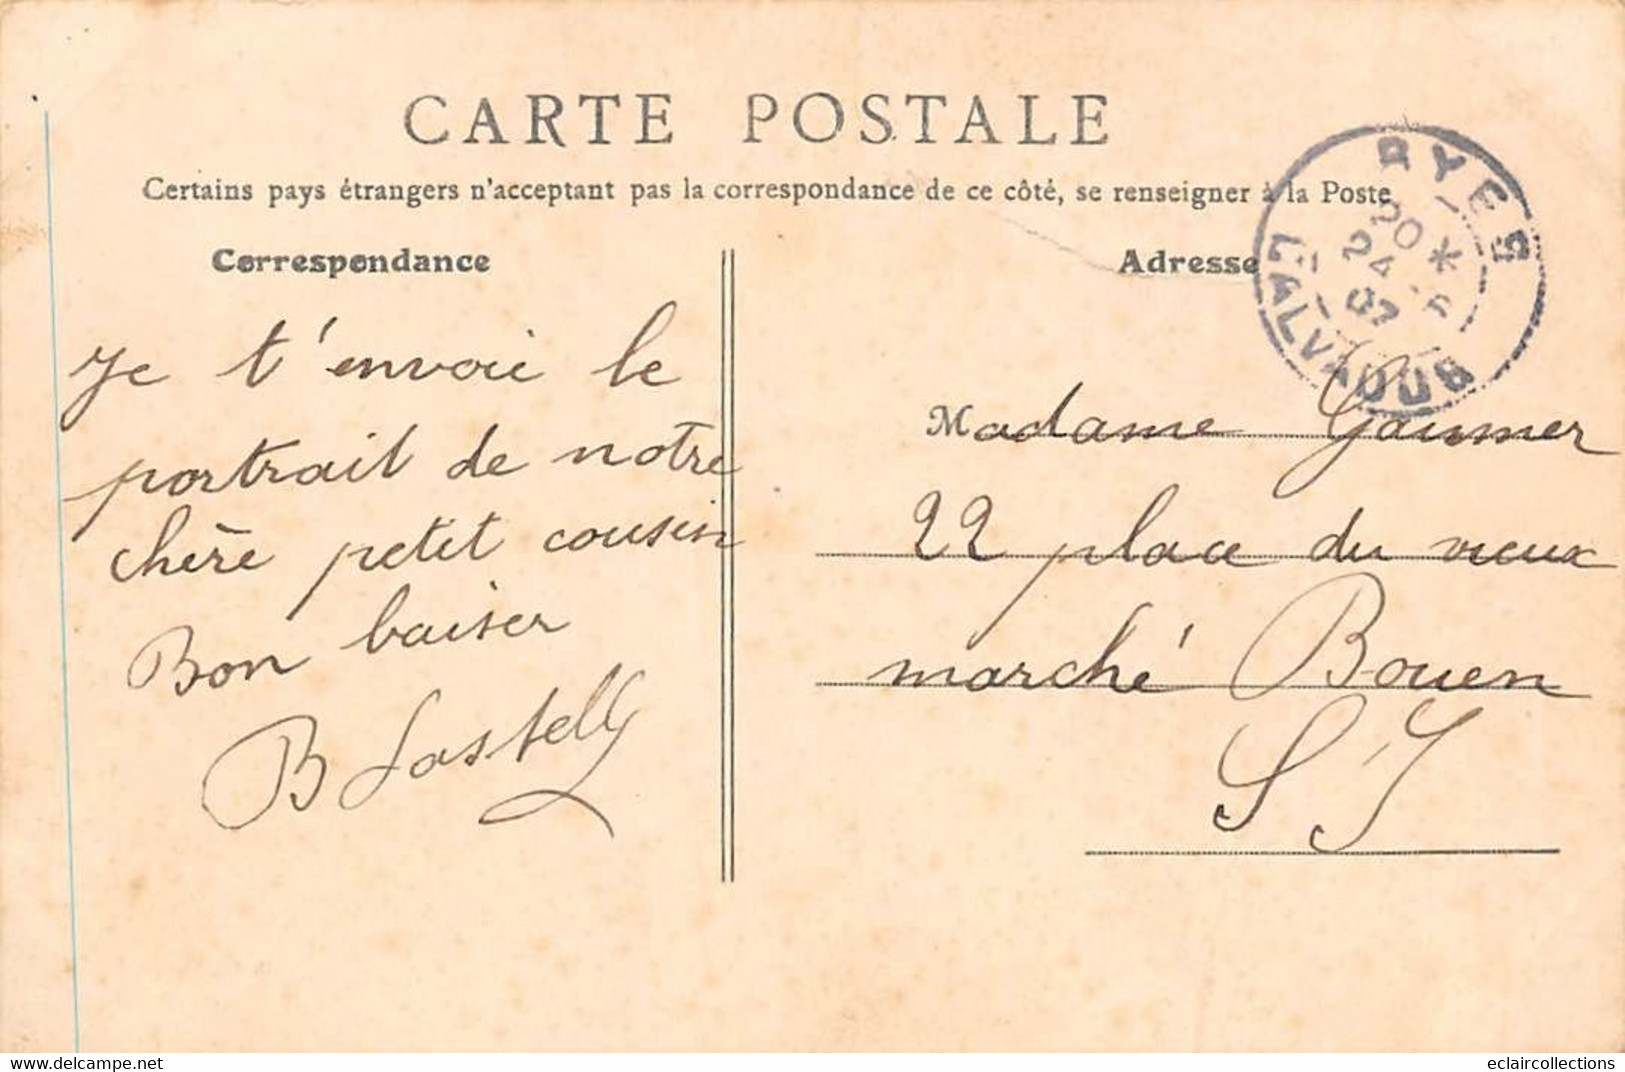 CARTE POSTALE
Certains pays étrangers n'acceptant pas la correspondance de ce côté, se renseigner à la Poste
Correspondance
Adresse
RYES
CALVADOS
je t'envoie le
portrait de notre
chère petit cousin
Bon baiser
B
Madame Gaumer
22 place du vieux
marché Rouen
S I
www.delcampe.net
eclaircollections